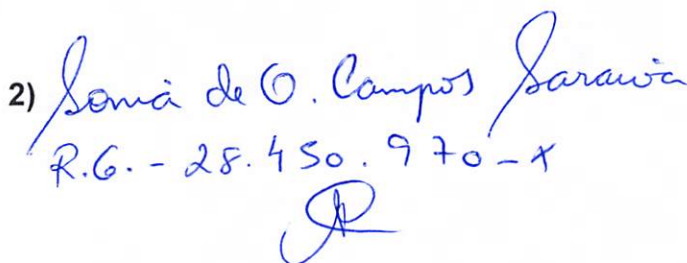 2) Sonia de O. Campos Saraiva
R.G. - 28.450.970-X